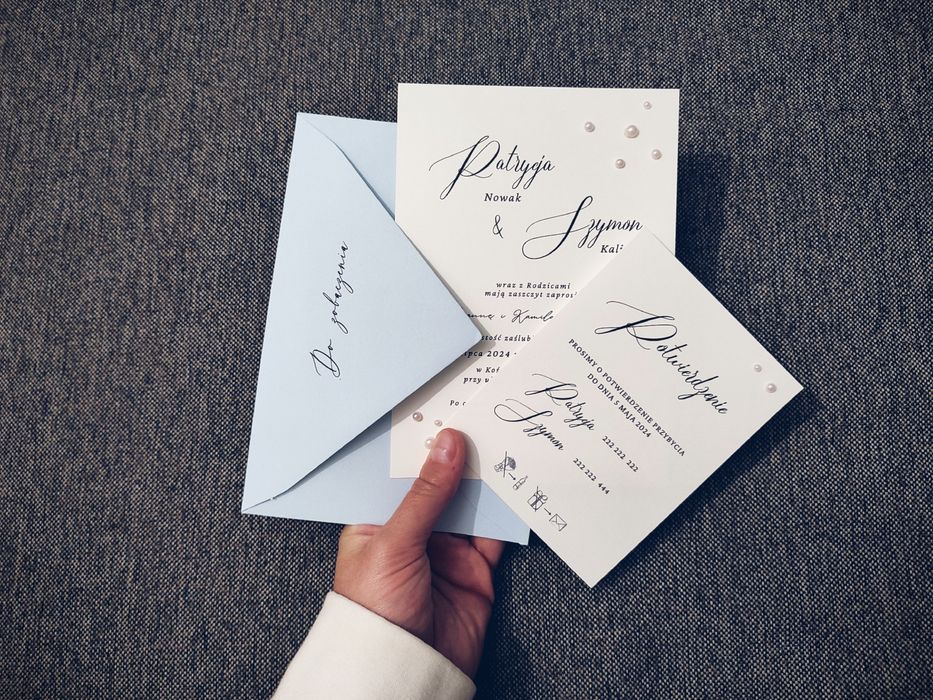 Do zobaczenia
Patrycja
Nowak
&
Szymon
wraz z Rodzicami
mają zaszczyt
i Kamila
2024
w
przy
Po
Potwierdzenie
PROSIMY O POTWIERDZENIE PRZYBYCIA
DO DNIA 5 MAJA 2024
Patrycja 222 222 222
Szymon 222 222 444